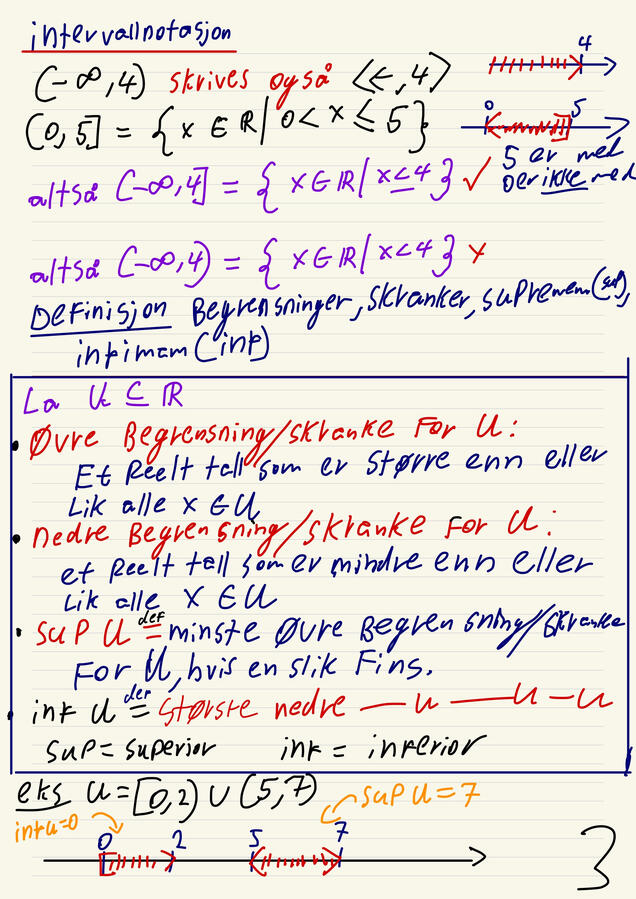 intervallnotasjon
(-∞,4) skrives også ⟨←,4⟩ 4
(0,5] = {x ∈ ℝ | 0 < x ≤ 5} 0 5
5 er med
0 er ikke med
altså (-∞,4] = {x ∈ ℝ | x ≤ 4} ✓
altså (-∞,4) = {x ∈ ℝ | x < 4} x
Definisjon Begrensninger, skranker, supremem (sup),
infimam (inf)
La U ⊆ ℝ
• Øvre Begrensning/skranke For U:
Et Reelt tall som er større enn eller
Lik alle x ∈ U
• nedre Begrensning/skranke For U:
et Reelt tall som er mindre enn eller
Lik alle x ∈ U
• sup U def= minste Øvre Begrensning/skranke
For U, hvis en slik Fins.
• inf U def= største nedre — u — u — u
sup = superior inf = inferior
eks U = [0,2) ∪ (5,7) sup U = 7
inf u = 0
0 2 5 7
3